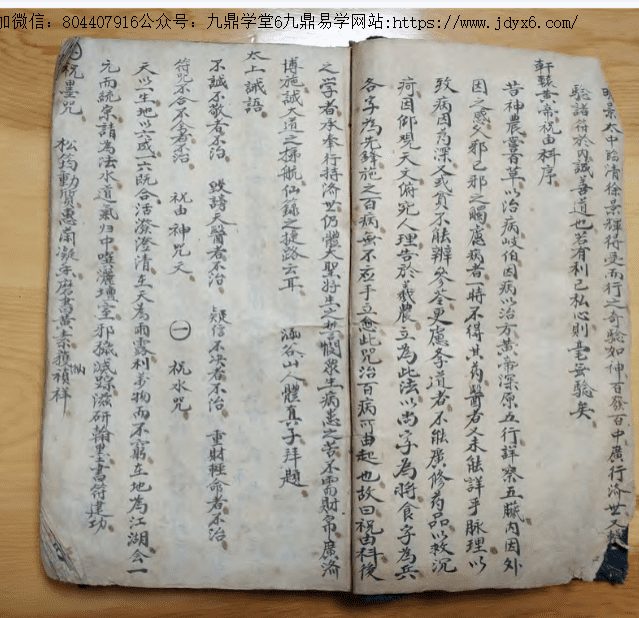 加微信：804407916公众号：九鼎学堂6九鼎易学网站:https://www.jdyx6.com/
景太中 清徐景輝得受而行之奇驗如神百發百中廣行濟世又
驗諸符於內誠善道也若有利己私心則毫無驗矣
軒轅黃帝祝由科序
昔神農嘗百草以治病岐伯因病以治方黃帝深原五行詳察五臟內因外
因之感久邪乙邪之觸處病者一時不得其藥醫者人未能詳乎脉理以
致病因為深又或貧不能辦參苓更慮 道者不能廣修药品以救沉
疴因仰观天文俯究人理告於羲農立為此法以尚字為將食字為兵
各字為先鋒施之百病無不應手立愈此咒治百病可由起也故曰祝由科後
之学者承奉行持濟世仍體大聖好生之 憫衆生病患之苦不需財帛廣濟
博施誠入道之梯航仙籙之捷路云耳 谷山人體真子拜題
太上誡語
不誠不敬者不治 毀謗天醫者不治 疑信不决者不治 重財輕命者不治
符咒不合不全者不治 祝由神咒天 一 祝水咒
天以一生地以六成一六既合活潑澄清在天為雨露利萬物而不窮在地為江湖会一
元而統宗請為法水道氣归中噀灑壇室邪 滅踪滋研翰墨書符建功
祝墨咒 松筠動質蕙蘭凝 書黃素攸獲禎祥